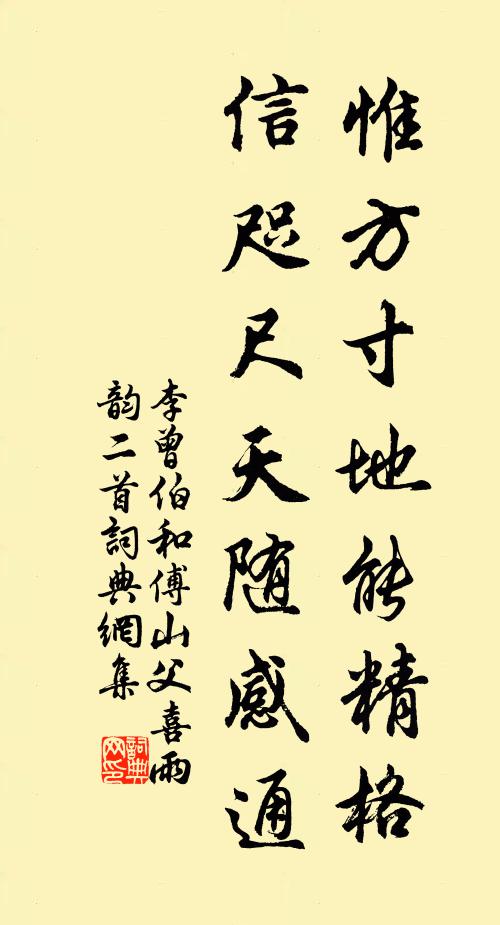 惟方寸地能精格
信咫尺天随感通
李曾伯和傅山父喜雨
韵二首詞典網集
詞典网印